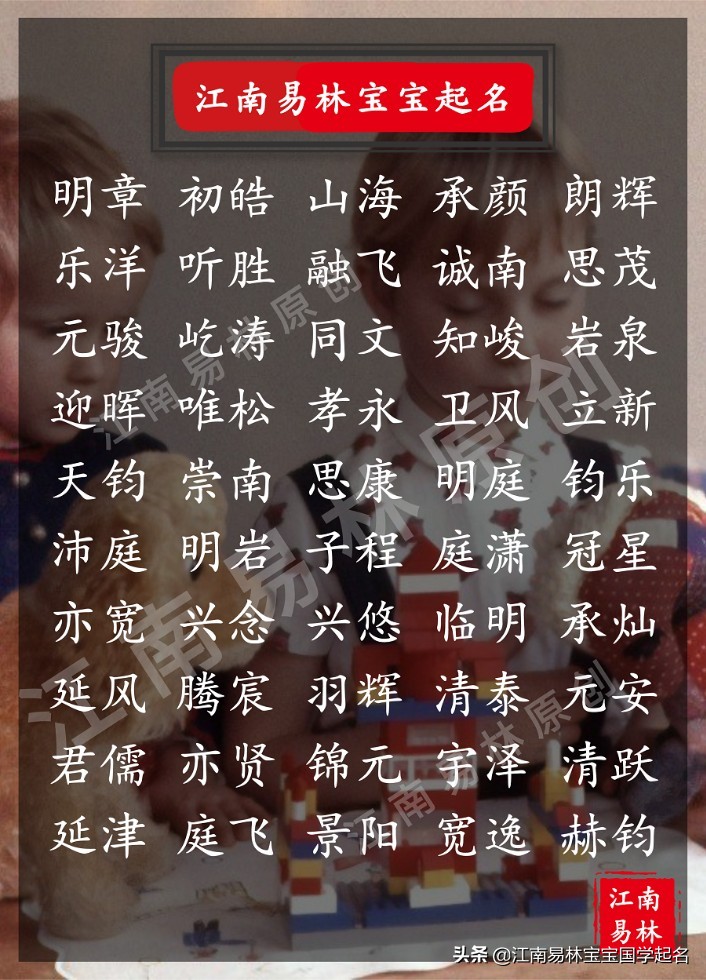 江南易林宝宝起名
明章 初皓 山海 承颜 朗辉
乐洋 听胜 融飞 诚南 思茂
元骏 屹涛 同文 知峻 岩泉
迎晖 唯松 孝永 卫风 立新
天钧 崇南 思康 明庭 钧乐
沛庭 明岩 子程 庭潇 冠星
亦宽 兴念 兴悠 临明 承灿
延风 腾宸 羽辉 清泰 元安
君儒 亦贤 锦元 宇泽 清跃
延津 庭飞 景阳 宽逸 赫钧
江南易林原创
江南易林原创
江南易林原创
江南
易林
头条 @江南易林宝宝国学起名